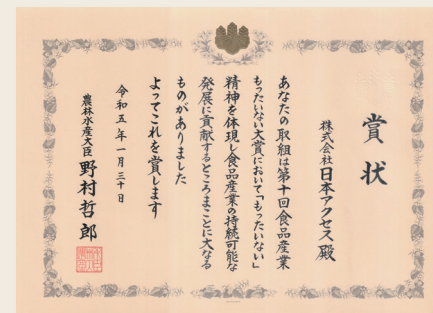 賞状
株式会社日本アクセス殿
あなたの取組は第十回食品産業
もったいない大賞において「もったいない」
精神を体現し食品産業の持続可能な
発展に貢献するところまことに大なる
ものがありました
よってこれを賞します
令和五年一月三十日
農林水産大臣 野村哲郎